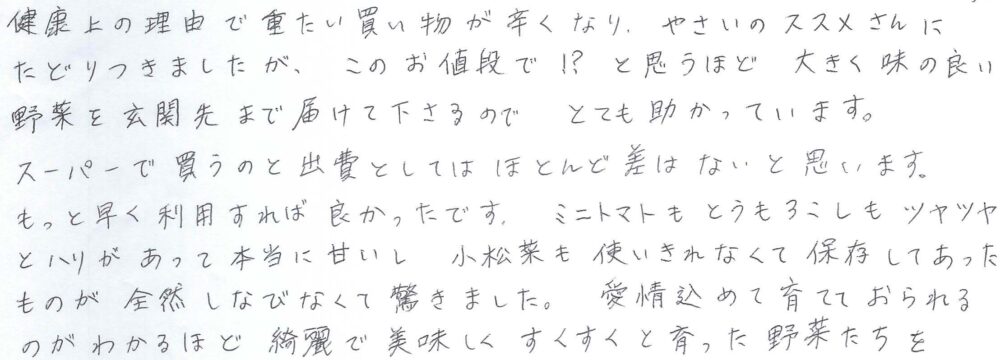 健康上の理由で重たい買い物が辛くなり、やさいのススメさんに
たどりつきましたが、このお値段で!?と思うほど 大きく味の良い
野菜を玄関先まで届けて下さるので とても助かっています。
スーパーで買うのと出費としてはほとんど差はないと思います。
もっと早く利用すれば良かったです。ミニトマトもとうもろこしもツヤツヤ
とハリがあって本当に甘いし 小松菜も使いきれなくて保存してあった
ものが全然しなびなくて驚きました。愛情込めて育てておられる
のがわかるほど綺麗で美味しくすくすくと育った野菜たちを